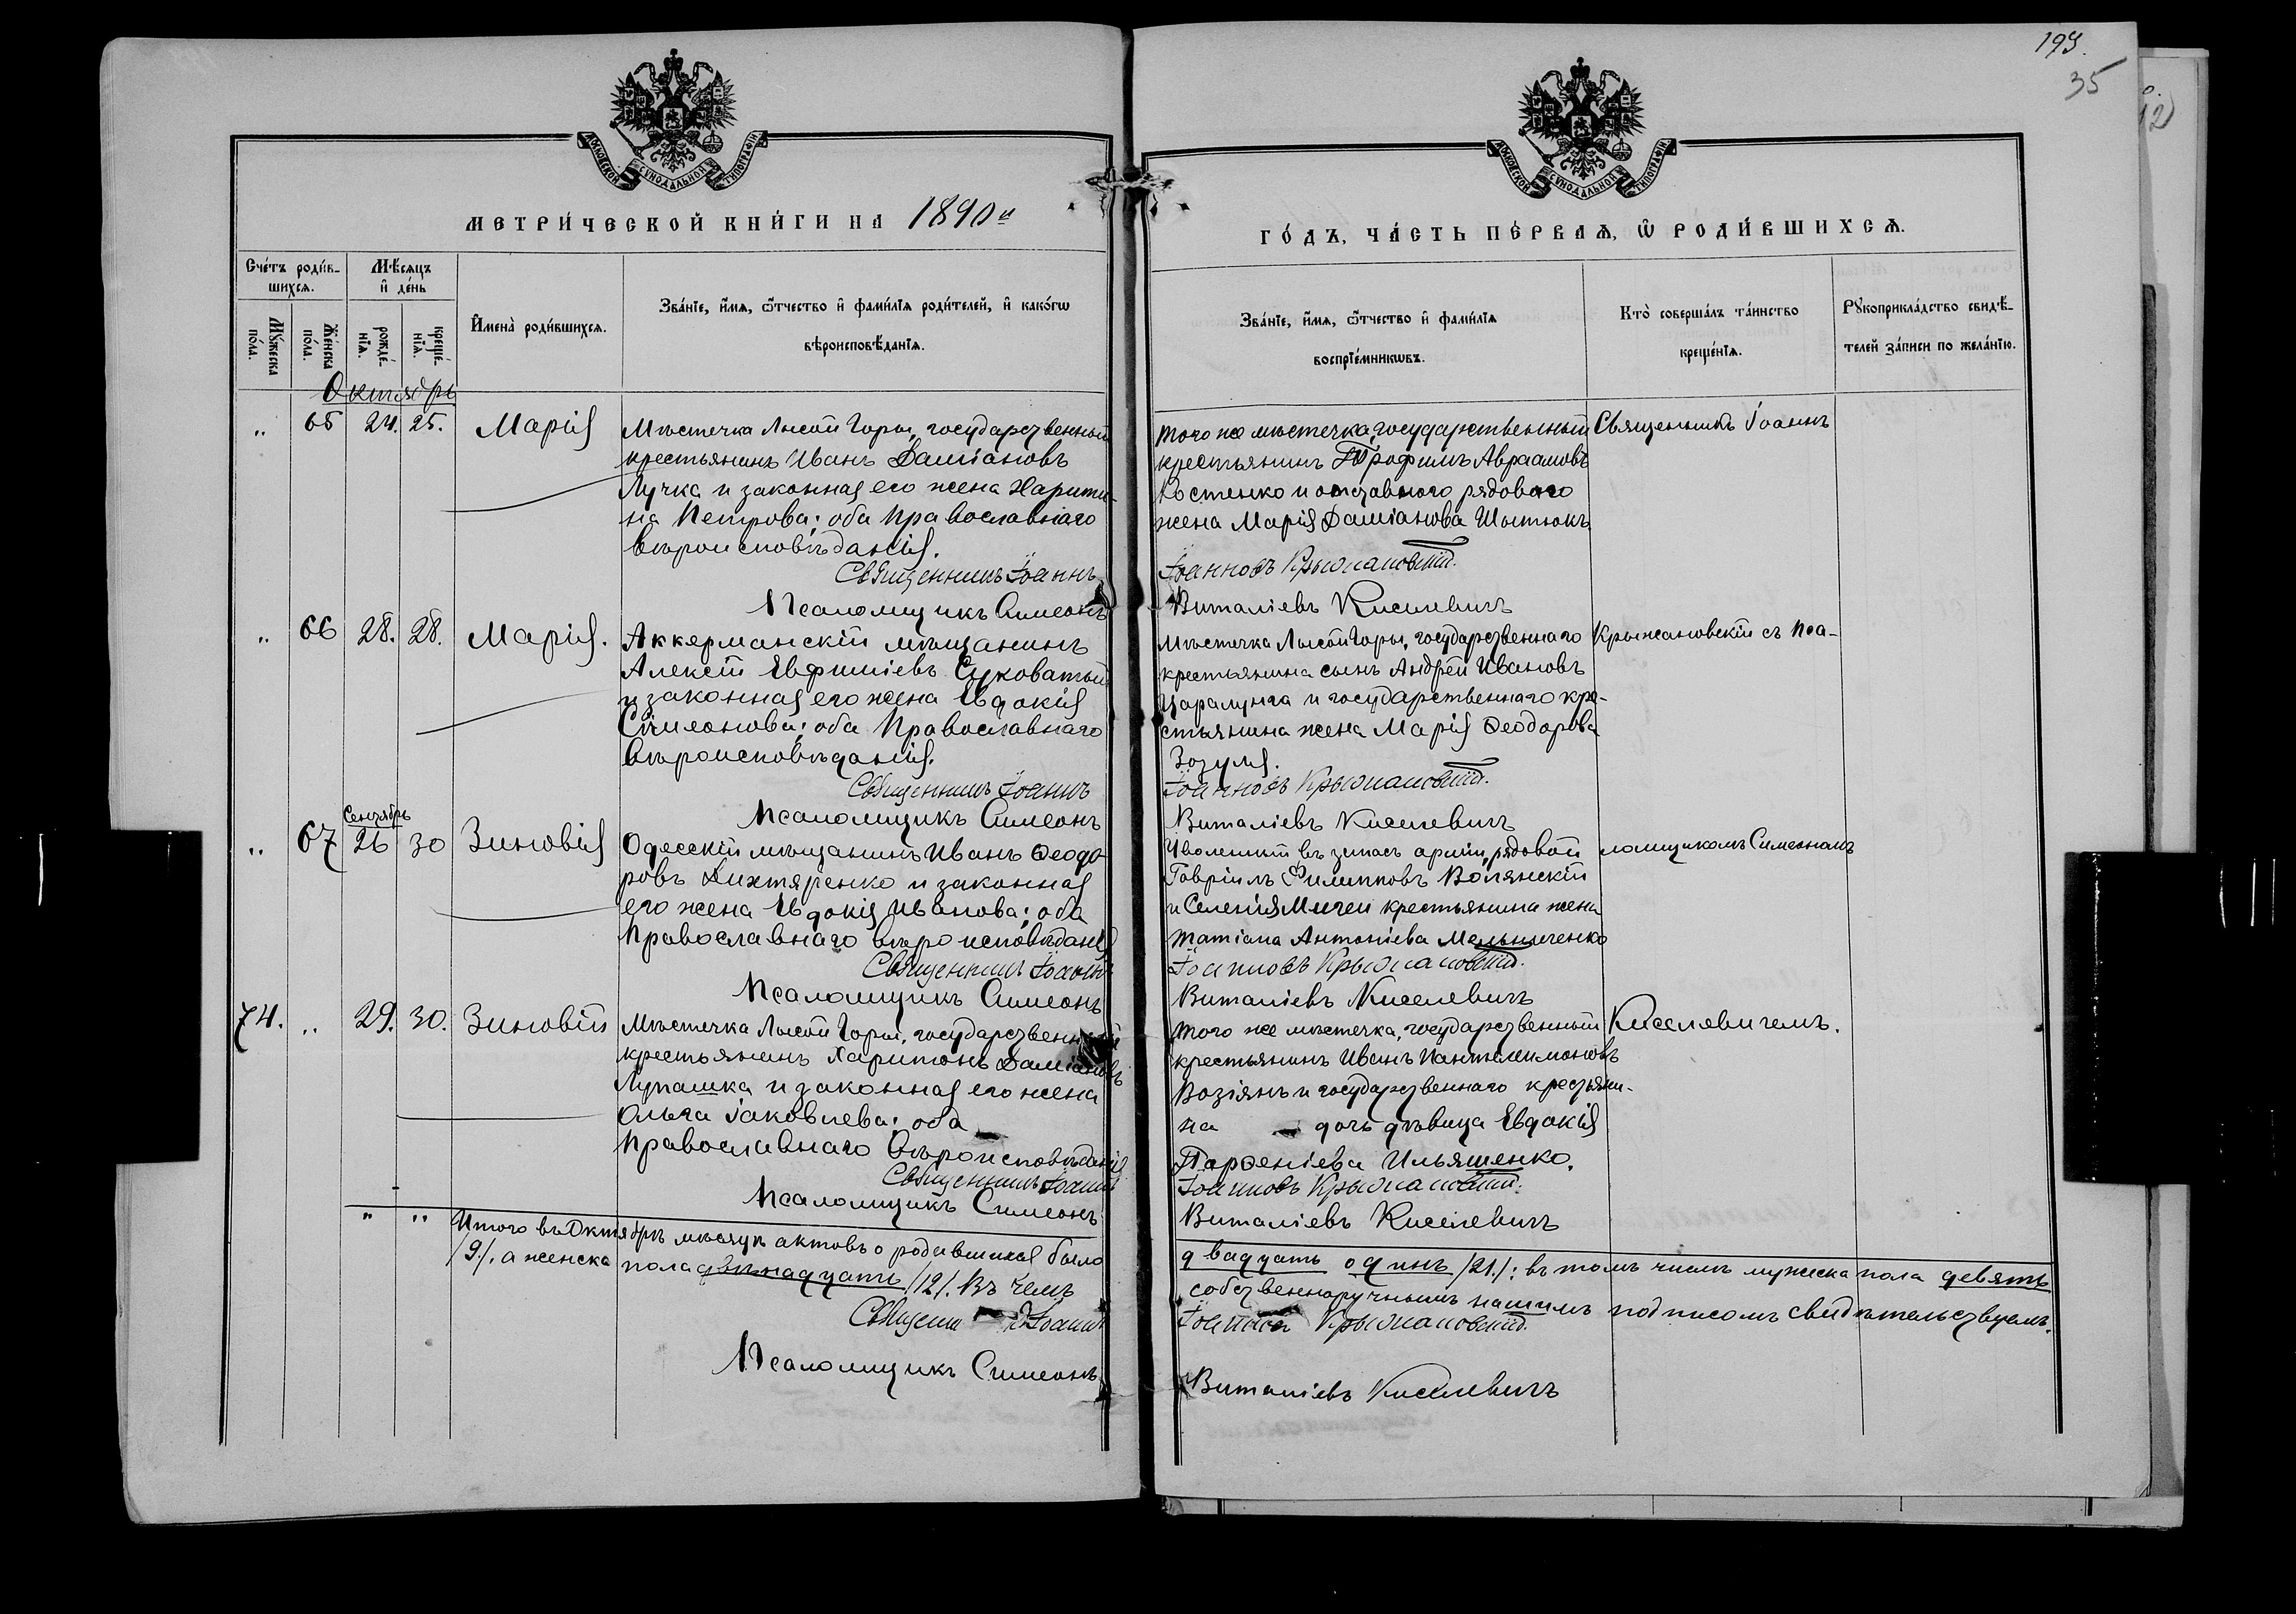 199.
35
12
МОСКОВСКОЙ СУНОДАЛЬНОЙ ТИПОГРАФІИ
МОСКОВСКОЙ СУНОДАЛЬНОЙ ТИПОГРАФІИ
МЕТРИ́ЧЕСКОЙ КНИ́ГИ НА 1890й
ГО́ДЪ, ЧА́СТЬ ПЕ́РВАѦ, Ѽ РОДИ́ВШИХСѦ.
Сче́тъ роди́в-
шихсѧ.
Мѣ́сѧцъ
и҆ де́нь
Мꙋ́жеска по́ла.
Же́нска по́ла.
рожде́-нїѧ.
креще́-нїѧ.
И҆мена̀ роди́вшихсѧ.
Зва́нїе, и҆́мѧ, ѻ҆́тчество и҆ фами́лїѧ роди́телей, и҆ како́гѡ
вѣроисповѣ́данїѧ.
Зва́нїе, и҆́мѧ, ѻ҆́тчество и҆ фами́лїѧ
воспрїе́мникѡвъ.
Кто̀ соверша́лъ та́инство
креще́нїѧ.
Рꙋкоприкла́дство свидѣ́-
телей за́писи по жела́нїю.
Октябрь
„ 65 24. 25. Марія
Мѣстечка Лысой Горы, государственный
крестьянинъ Иванъ Даміановъ
Лучка и законная его жена Харити-
на Петрова; оба Православнаго
вѣроисповѣданія.
Священникъ Іоаннъ
Псаломщикъ Симеонъ
того же мѣстечка, государственный
крестьянинъ Трофимъ Авраамовъ
Костенко и отставного рядового
жена Марія Даміанова Шытюкъ
Іоанновъ Крыжановскій.
Виталіевъ Киселевичъ
Священникъ Іоаннъ
„ 66 28. 28. Марія.
Аккерманскій мѣщанинъ
Алексій Евфиміевъ Суковатый
и законная его жена Евдокія
Симеонова; оба Православнаго
вѣроисповѣданія.
Священникъ Іоаннъ
Псаломщикъ Симеонъ
Мѣстечка Лысой Горы, государственнаго
крестьянина сынъ Андрей Ивановъ
Царалунга и государственнаго кре-
стьянина жена Марія Ѳеодорова
Зозуля.
Іоанновъ Крыжановскій.
Виталіевъ Киселевичъ
Крыжановскій съ Пса-
Сентябрь
„ 67 26 30 Зиновія
Одесскій мѣщанинъ Иванъ Ѳеодо-
ровъ Дихтяренко и законная
его жена Евдокія Иванова; оба
Православнаго вѣроисповѣданія
Священникъ Іоаннъ
Псаломщикъ Симеонъ
Уволенный въ запасъ арміи, рядовой
Гавріилъ Филипповъ Волянскій
и Селенія Мигеи крестьянина жена
Татіана Антоніева Мельниченко
Іоанновъ Крыжановскій.
Виталіевъ Киселевичъ
ломщикомъ Симеономъ
74. „ 29. 30. Зиновій
Мѣстечка Лысой Горы, государственный
крестьянинъ Харитонъ Даміановъ
Лупашка и законная его жена
Ольга Іаковлева; оба
Православнаго вѣроисповѣданія
Священникъ Іоаннъ
Псаломщикъ Симеонъ
того же мѣстечка, государственный
крестьянинъ Иванъ Пантелимоновъ
Возіянъ и государственнаго крестьяни-
на дочь дѣвица Евдокія
Парѳеніева Ильяшенко.
Іоанновъ Крыжановскій.
Виталіевъ Киселевичъ
Киселевичемъ.
„ „ Итого въ Октябрѣ мѣсяцѣ актовъ о родившихся было
двадцать одинъ /21./: въ томъ числѣ мужеска пола девять
/9/. а женска пола двѣнадцать /12/. Въ чемъ
собственноручнымъ нашимъ подписомъ свидѣтельствуемъ.
Священникъ Іоаннъ
Іоанновъ Крыжановскій.
Псаломщикъ Симеонъ
Виталіевъ Киселевичъ